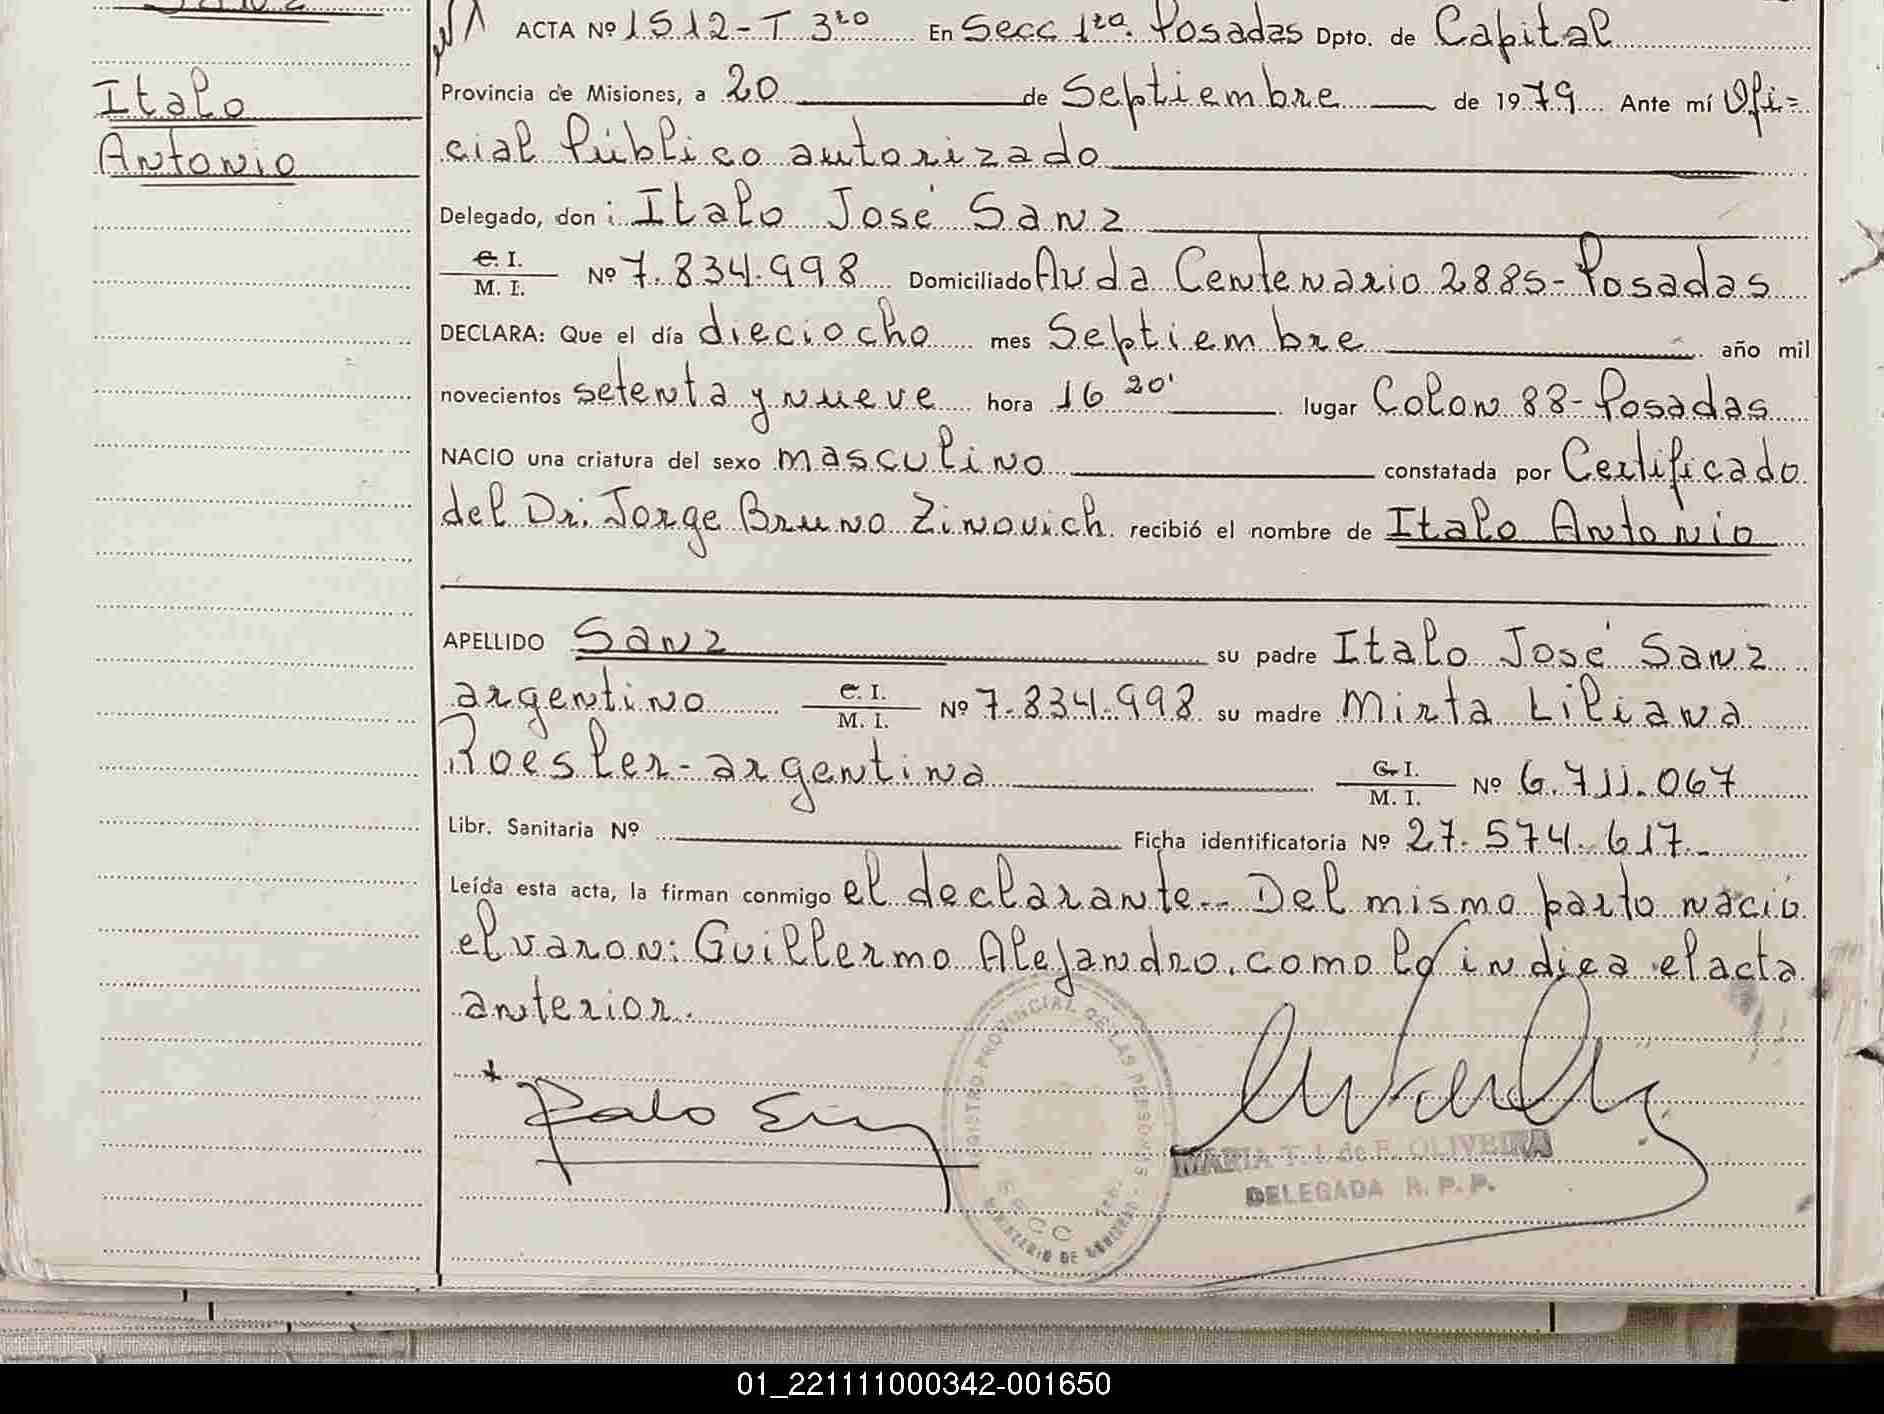 Italo
Antonio
ACTA Nº 1512-T 3ro En Secc 1ra. Posadas Dpto. de Capital
Provincia de Misiones, a 20 de Septiembre de 1979 Ante mí Ofi=
cial Público autorizado
Delegado, don: Italo José Sanz
C. I.
M. I. Nº 7.834.998 Domiciliado Avda Centenario 2885-Posadas
DECLARA: Que el día dieciocho mes Septiembre año mil
novecientos setenta y nueve hora 16 20' lugar Colon 88-Posadas
NACIO una criatura del sexo masculino constatada por Certificado
del Dr. Jorge Bruno Zinovich recibió el nombre de Italo Antonio
APELLIDO Sanz su padre Italo José Sanz
argentino C. I.
M. I. Nº 7.834.998 su madre Mirta Liliana
Roesler-argentina C. I.
M. I. Nº 6.711.067
Libr. Sanitaria Nº Ficha identificatoria Nº 27.574.617
Leída esta acta, la firman conmigo el declarante.. Del mismo parto nació
el varon: Guillermo Alejandro, como lo indica el acta
anterior.
REGISTRO PROVINCIAL DE LAS PERSONAS
SECC 1ra.
MINISTERIO DE GOBIERNO
MARIA T. I. de F. OLIVEIRA
DELEGADA R. P. P.
01_221111000342-001650